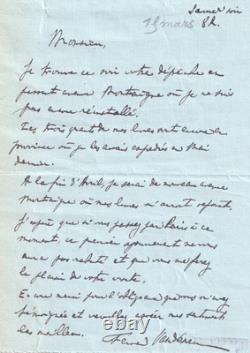 Samedi soir
13 mars 82.
Monsieur,
Je trouve ce soir votre dépêche en
avenue Montaigne où je ne suis
pas encore réinstallé.
Les trois quarts de mes livres sont encore en
province où je les avais expédiés en Mai
dernier.
A la fin d'Avril, je serai de nouveau avenue
Montaigne où mes livres m'auront rejoint.
J'espère que si vous passez par Paris à ce
moment, ce pensées ne me
sera pas et que vous me ferez
le plaisir de votre visite.
Encore merci pour l'obligeance que vous m'avez
témoignée et veuillez agréer mes sentiments
les meilleurs.
Fernand Vandérem